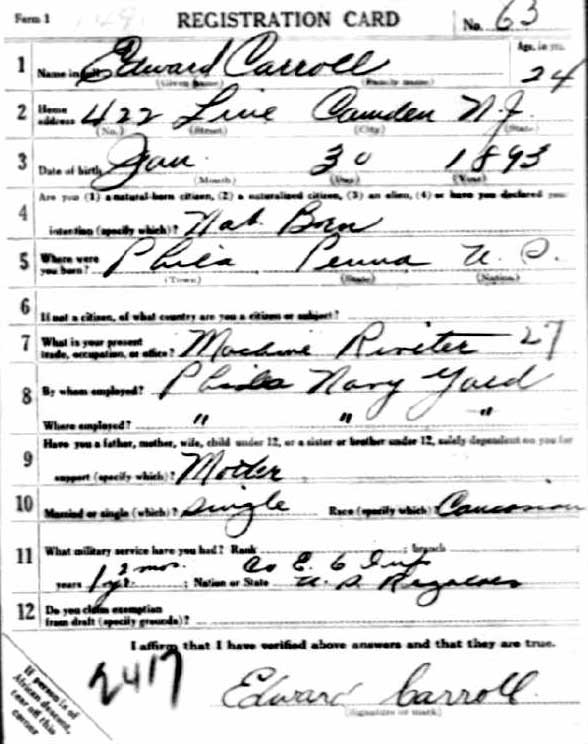 Form 1
REGISTRATION CARD
No. 63
Age, in yrs.
1 Name in full Edward Carroll 24
(Given name) (Family name)
2 Home address 422 Line Camden N.J.
(No.) (Street) (City) (State)
3 Date of birth Jan. 30 1893
(Month) (Day) (Year)
Are you (1) a natural-born citizen, (2) a naturalized citizen, (3) an alien, (4) or have you declared your
4 intention (specify which)? Nat. Born
5 Where were you born? Phila Penna U. S.
(Town) (State) (Nation)
6 If not a citizen, of what country are you a citizen or subject?
7 What is your present trade, occupation, or office? Machine Riveter 27
8 By whom employed? Phila Navy Yard
Where employed? " " "
Have you a father, mother, wife, child under 12, or a sister or brother under 12, solely dependent on you for
9 support (specify which)? Mother
10 Married or single (which)? Single Race (specify which) Caucasian
11 What military service have you had? Rank ; branch
2 mos. Co E. 6 Inf
years 1 yr. ; Nation or State U. S. Regulars
12 Do you claim exemption from draft (specify grounds)?
I affirm that I have verified above answers and that they are true.
2417
Edward Carroll.
(Signature or mark)
If person is of
African descent,
tear off this
corner